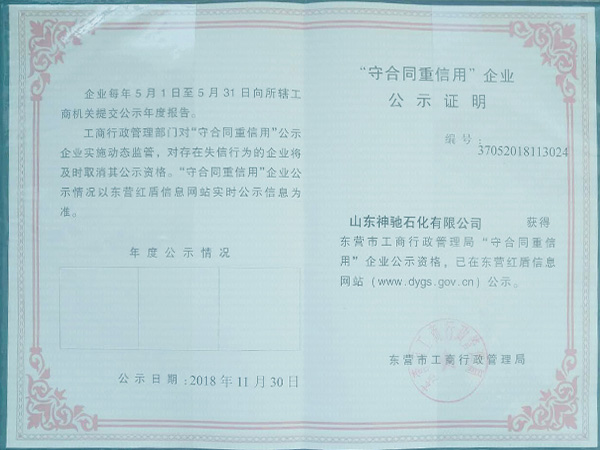 企业每年5月1日至5月31日向所辖工
商机关提交公示年度报告。
工商行政管理部门对“守合同重信用”公示
企业实施动态监管，对存在失信行为的企业将
及时取消其公示资格。“守合同重信用”企业公
示情况以东营红盾信息网站实时公示信息为
准。
年度公示情况
公示日期：2018年11月30日
“守合同重信用”企业
公示证明
编号：
37052018113024
山东神驰石化有限公司 获得
东营市工商行政管理局“守合同重信
用”企业公示资格，已在东营红盾信息
网站（www.dygs.gov.cn）公示。
东营市工商行政管理局